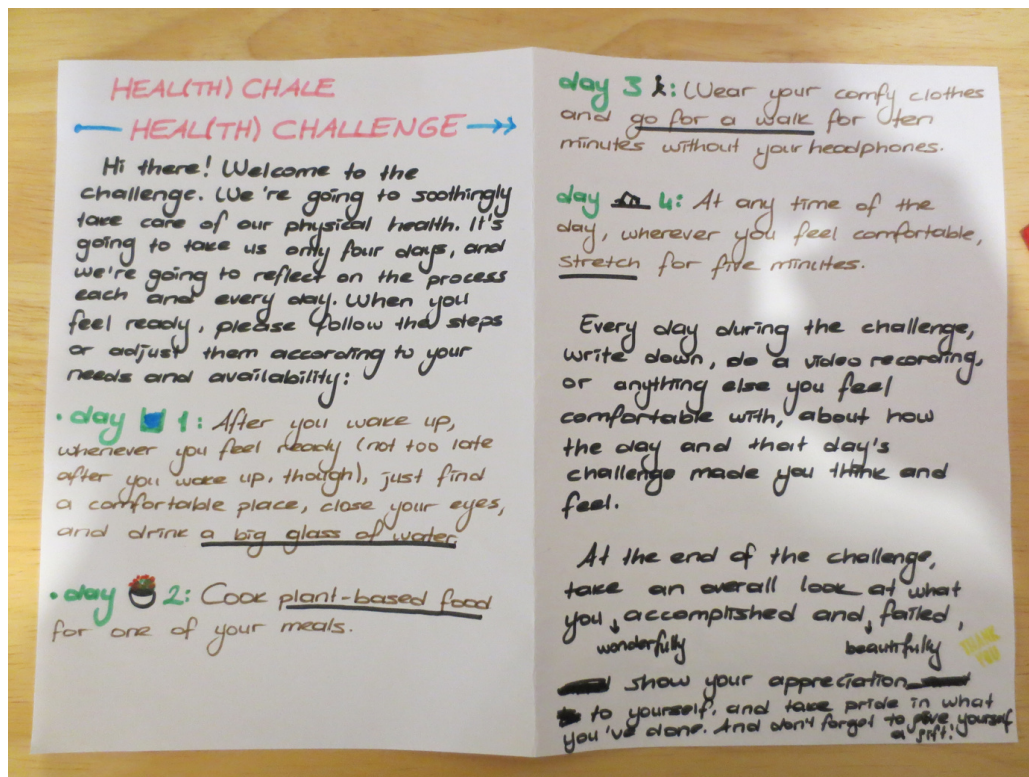 HEAL(TH) CHALE
HEAL(TH) CHALLENGE
Hi there! Welcome to the
challenge. We're going to soothingly
take care of our physical health. It's
going to take us only four days, and
we're going to reflect on the process
each and every day. When you
feel ready, please follow the steps
or adjust them according to your
needs and availability:
• day 1: After you wake up,
whenever you feel ready (not too late
after you wake up, though), just find
a comfortable place, close your eyes,
and drink a big glass of water
• day 2: Cook plant-based food
for one of your meals.
day 3: Wear your comfy clothes
and go for a walk for ten
minutes without your headphones.
day 4: At any time of the
day, wherever you feel comfortable,
stretch for five minutes.
Every day during the challenge,
write down, do a video recording,
or anything else you feel
comfortable with, about how
the day and that day's
challenge made you think and
feel.
At the end of the challenge,
take an overall look at what
you accomplished and failed,
wonderfully beautifully
THANK
YOU
show your appreciation
to yourself, and take pride in what
you've done. And don't forget to give yourself
a gift!